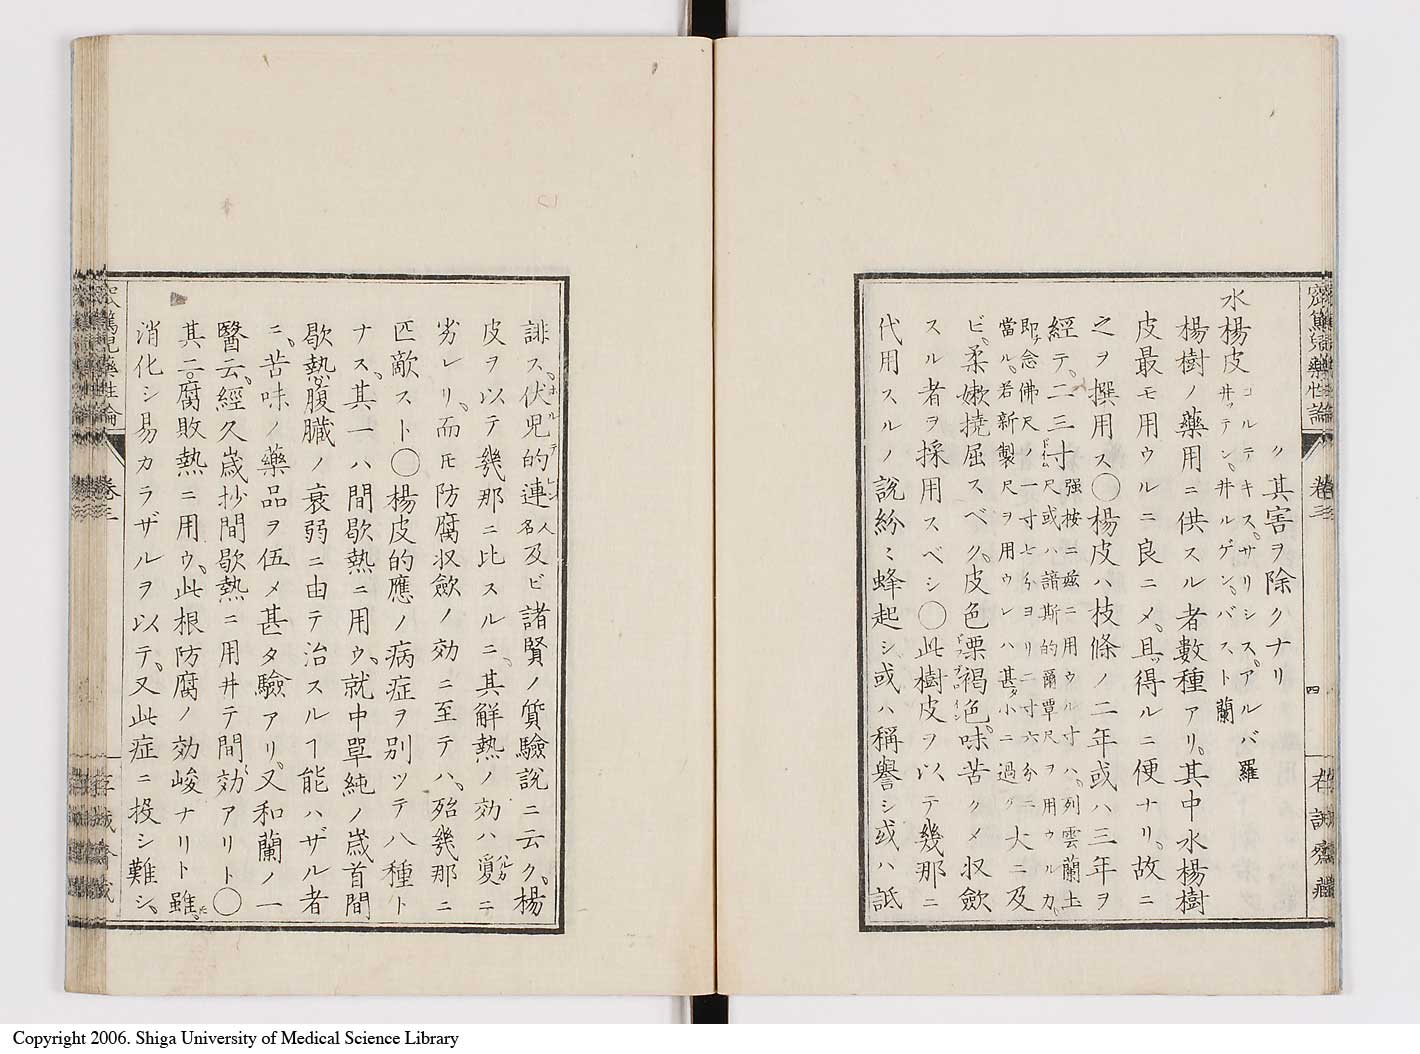 齊篤兒藥性論 卷三 四
ク其害ヲ除クナリ
水楊皮 コルテキス、サリシス、アルバ 羅
井ッテン、井ルゲン、バスト 蘭
楊樹ノ藥用ニ供スル者數種アリ、其中水楊樹
皮最モ用ウルニ良ニメ、且得ルニ便ナリ、故ニ
之ヲ撰用ス○楊皮ハ枝條ノ二年或ハ三年ヲ
經テ、二三寸強按ニ玆ニ用ウル寸ハ、列雲蘭土
尺或ハ諳斯的爾覃尺ヲ用ウルカ、
即念佛尺ノ一寸七分ヨリ二寸六分ニ
當ル、若新製尺ヲ用ウレハ甚タ小ニ過ク大ニ及
ビ、柔嫩撓屈スベク、皮色栗褐色、味苦クメ収斂
スル者ヲ採用スベシ○此樹皮ヲ以テ幾那ニ
代用スルノ說紛〻蜂起シ、或ハ稱譽シ或ハ詆
誹ス、伏児的連人名及ビ諸賢ノ質驗說ニ云ク、楊
皮ヲ以テ幾那ニ比スルニ、其解熱ノ効ハ夐ニ
劣レリ、而モ防腐収斂ノ効ニ至テハ、殆幾那ニ
匹敵スト○楊皮的應ノ病症ヲ別ッテ八種ト
ナス、其一ハ間歇熱ニ用ウ、就中單純ノ歳首間
歇熱、腹臓ノ衰弱ニ由テ治スルヿ能ハザル者
ニ、苦味ノ藥品ヲ伍メ甚タ驗アリ、又和蘭ノ一
醫云、經久歳抄間歇熱ニ用井テ間効アリト○
其二、腐敗熱ニ用ウ、此根防腐ノ効峻ナリト雖、
消化シ易カラザルヲ以テ、又此症ニ投シ難シ、
藥性論 卷三
Copyright 2006. Shiga University of Medical Science Library